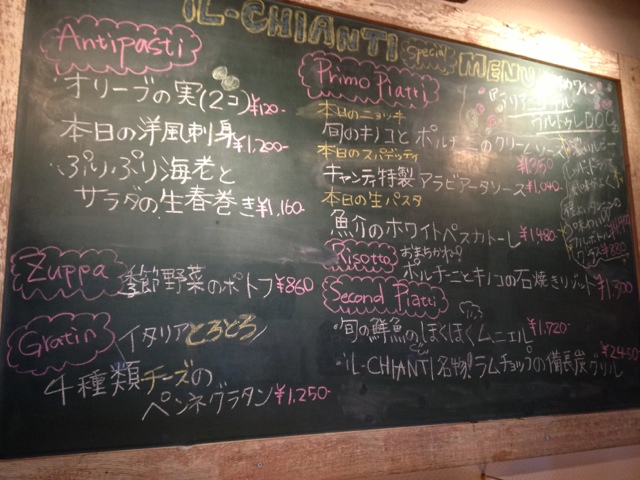 IL-CHIANTI Special MENU
Antipasti
オリーブの実(2コ)¥120-
本日の洋風刺身¥1,200-
ぷりぷり海老と
サラダの生春巻き¥1,160-
Zuppa 季節野菜のポトフ¥860
Gratin イタリアとろとろ
4種類チーズの
ペンネグラタン¥1,250-
Primo Piatti
本日のニョッキ
旬のキノコとポルチーニのクリームソース
本日のスパゲッティ
キャンティ特製アラビアータソース¥1,040-
本日の生パスタ
魚介のホワイトペスカトーレ¥1,480-
Risotto
ポルチーニとキノコの石焼きリゾット¥1,300
Second Piatti
旬の鮮魚のほくほくムニエル¥1,720-
iL-CHIANTI名物!ラムチョップの備長炭グリル
¥2450